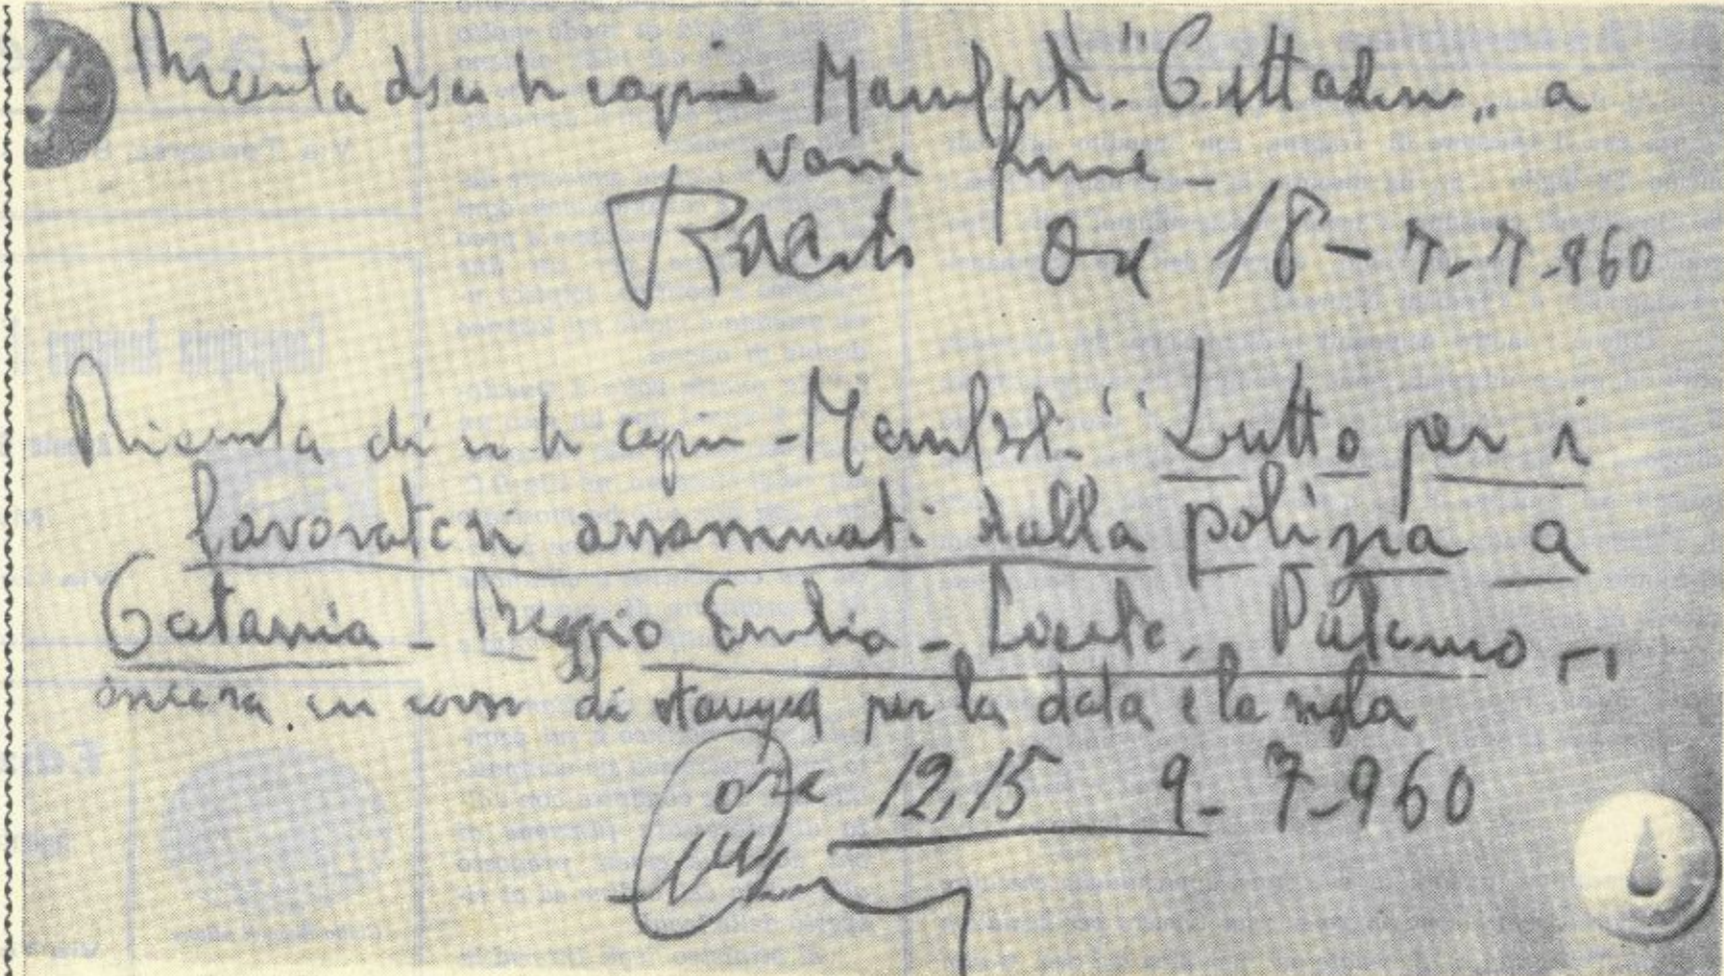 Ricevuta di copie Manifesti "Cittadini" a
varie firme -
Ore 18 - 7-7-960
Ricevuta di copie - Manifesti "Lutto per i
lavoratori assassinati dalla polizia a
Catania - Reggio Emilia - Licata, Palermo - "
ancora in corso di stampa per la data e la sigla
ore 12,15 9-7-960